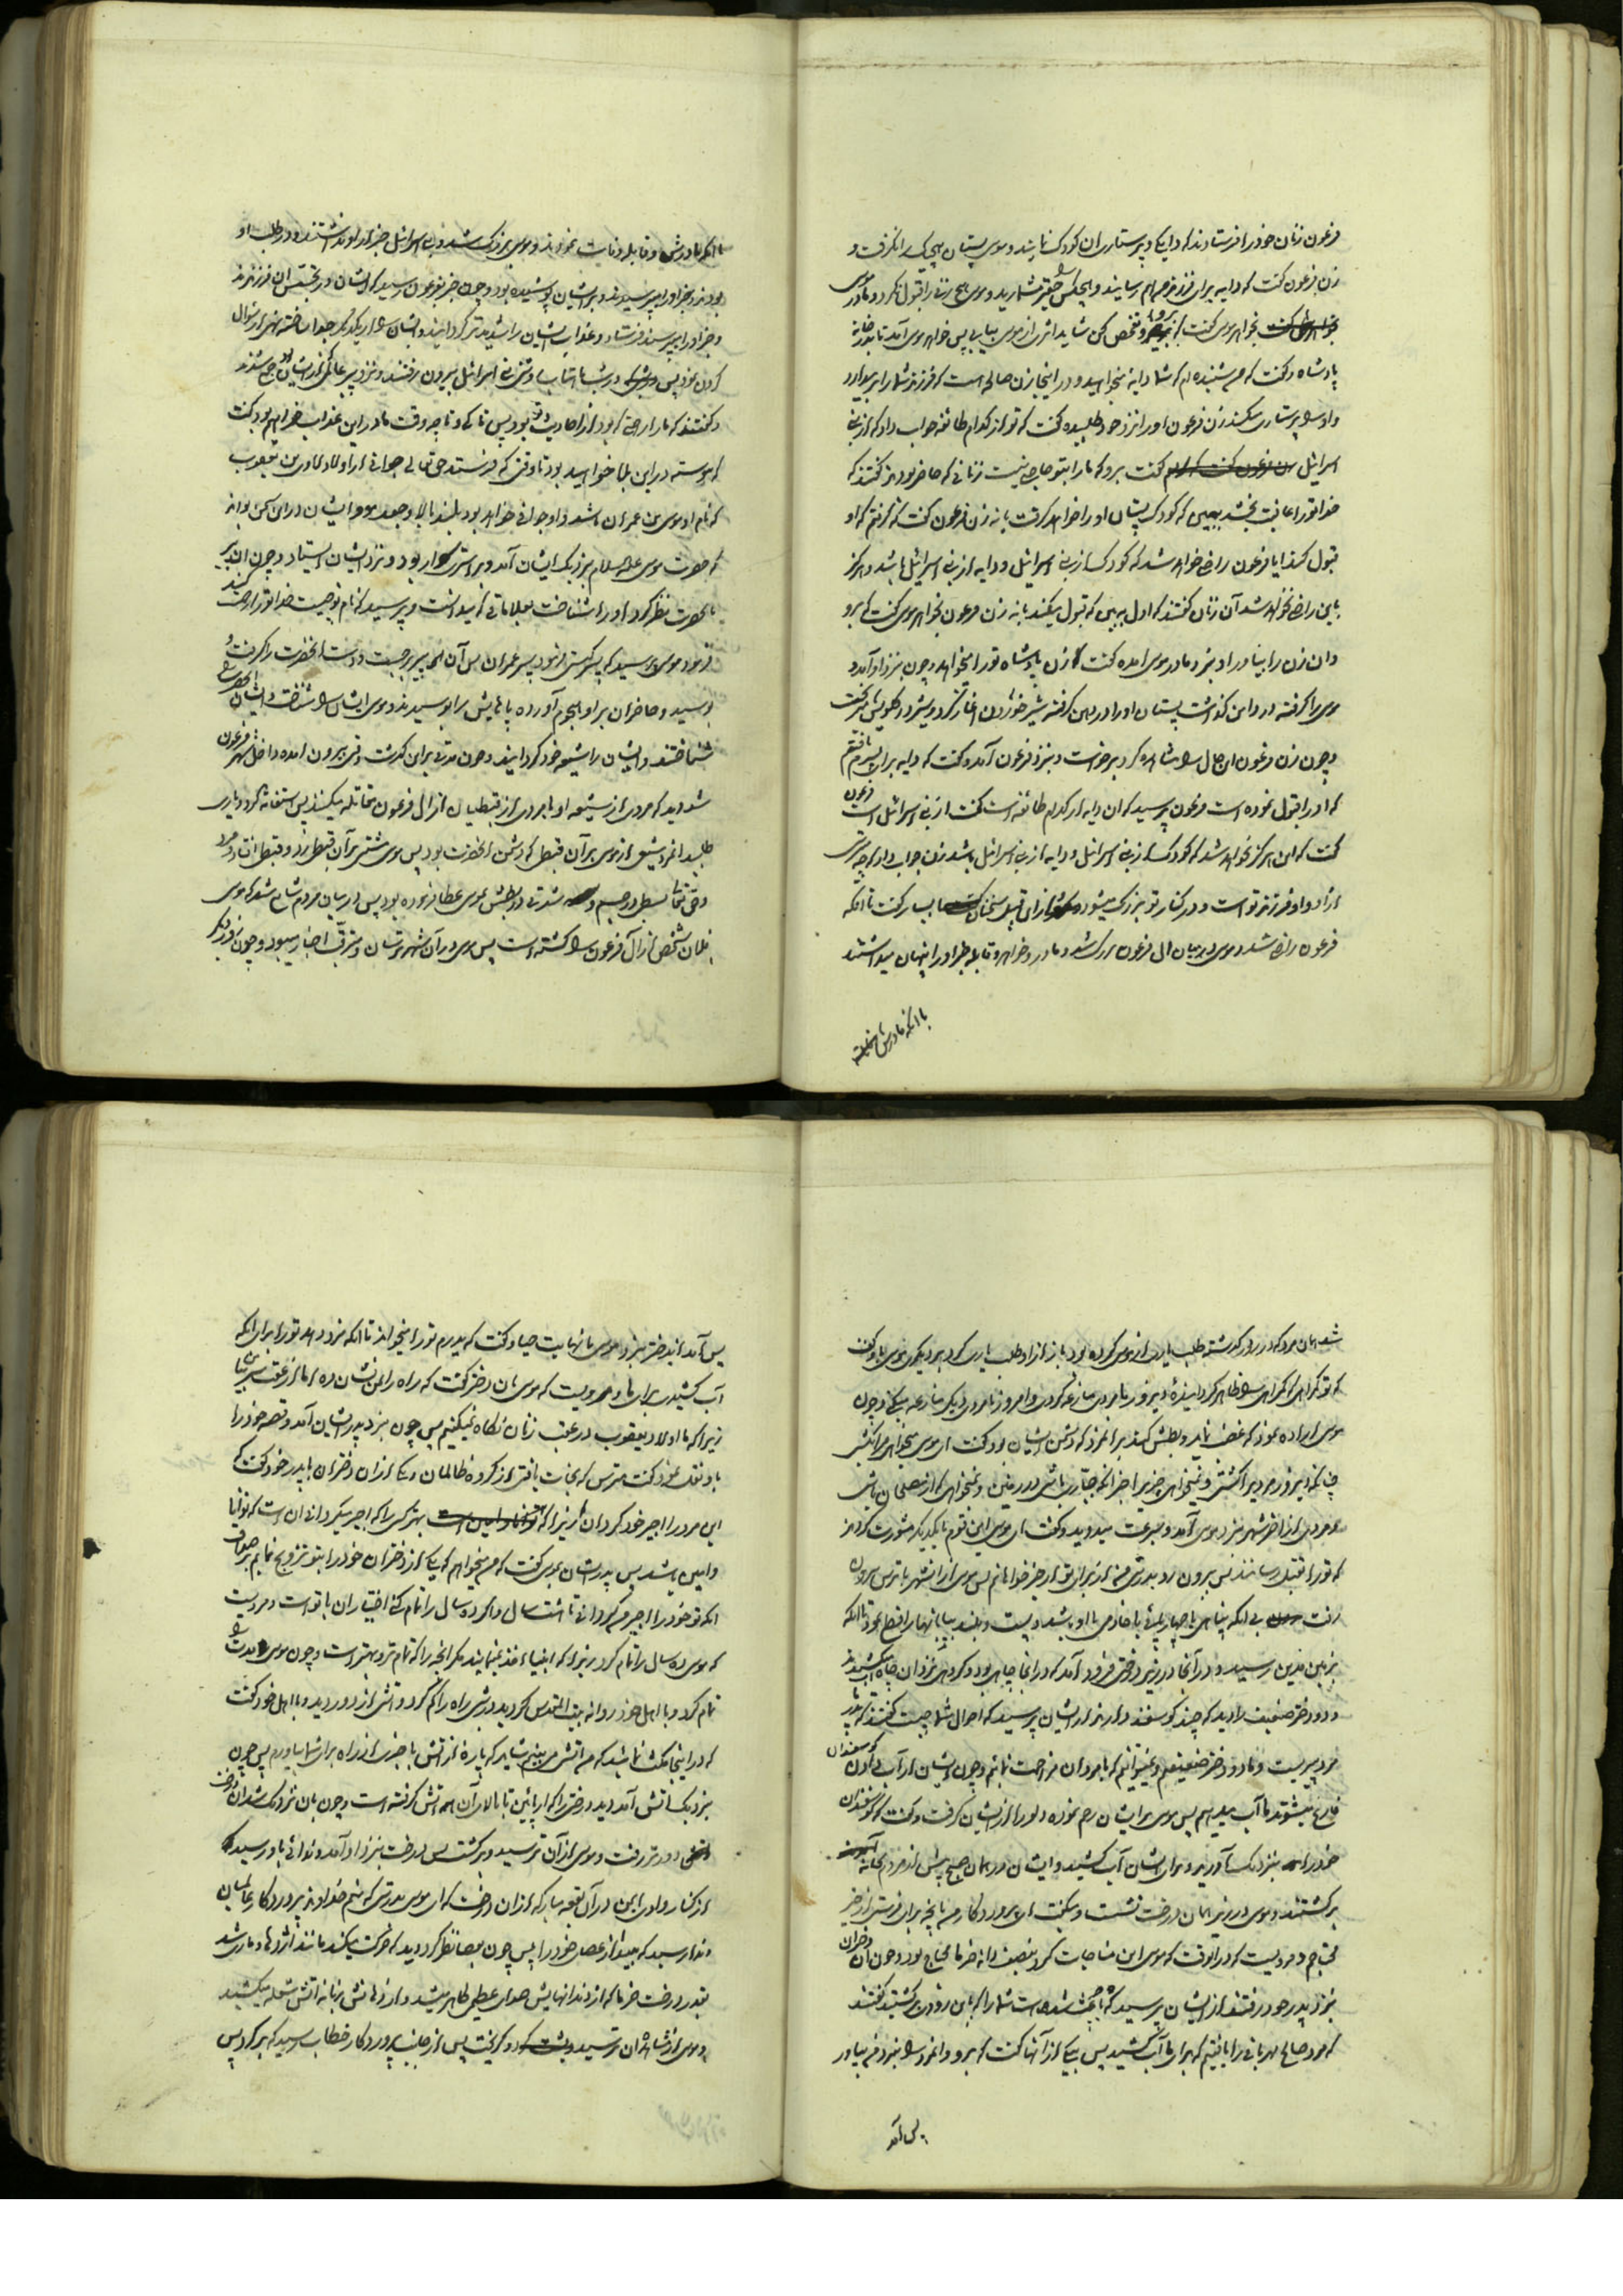 فرعون زنان خود را فرستادند که دایگان و پرستاران کودک نمایند و موسی پستان هیچیک را نگرفت و
زن فرعون گفت که دایه برای فرزندم بهم رسانید و هیچکس را حقیر مشمارید و موسی هیچ زن را قبول نکرد و مادر موسی
بخواهر موسی گفت که برو و تفحص کن شاید اثری از موسی بیابی پس خواهر موسی آمد تا بدر خانه
پادشاه و گفت که من شنیده‌ام که شما دایه میخواهید و در اینجا زن صالحه است که فرزند شما را بر میدارد
و او را پرستاری میکند زن فرعون او را نزد خود طلبیده گفت که تو از کدام طائفه جواب داد که از بنی
اسرائیل گفت برو که ما را بتو حاجت نیست زنانی که حاضر بودند گفتند که
خدا تو را عافیت بخشد ببین که کودک پستان او را خواهد گرفت یا نه زن فرعون گفت که گرفتم که او
قبول کند ایا فرعون راضی خواهد شد که کودک از بنی اسرائیل و دایه از بنی اسرائیل باشد و هرگز
باین راضی نخواهد شد آن زنان گفتند که اول ببین که قبول میکند یا نه زن فرعون بخواهر موسی گفت که برو
و ان زن را بیاور او بنزد مادر موسی امده گفت که زن پادشاه تو را میخواهد و چون بنزد او آمد و
موسی را گرفته در دامن گذاشت پستان او را در دهن گرفته شیر خوردن اغاز کرد و شیر در گلویش میریخت
و چون زن فرعون این حال را مشاهده کرد برخواست و بنزد فرعون آمد و گفت که دایه برای پسرم یافتم
که او را قبول نموده است فرعون پرسید که ان دایه از کدام طائفه است گفت از بنی اسرائیل است فرعون
گفت که این هرگز نخواهد شد که کودک از بنی اسرائیل و دایه از بنی اسرائیل باشد زن جواب داد که چه میترسی
ازاد و او فرزند تو است و در کنار تو بزرگ میشود و از این قبیل سخنان بسیار گفت تا انکه
فرعون راضی شد و موسی در میان ال فرعون بزرگ شد و مادر و خواهر و قابله خبر او را پنهان میداشتند
با انکه مادرش
تا انکه مادرش و قابله وفات نمودند و موسی بزرگ شد و بنی اسرائیل خبر از او نداشتند و در طلب او
بودند و خبر او را میپرسیدند و بر ایشان پوشیده بود و چون خبر بفرعون رسید که ایشان در تجسس ان فرزندند
و خبر او را میپرسند فرستاد و عذاب ایشان را شدیدتر گردانید و ایشان را از یکدیگر جدا ساخته نهی از سوال
کردن نمود پس در شب ماهتاب وقتی بنی اسرائیل بیرون رفتند و نزد پیر عالمی که در ایشان بود جمع شدند
و گفتند که ما را راحتی که بود از احادیث تو بود پس تا کی و تا چه وقت ما در این عذاب خواهیم بود گفت
که پیوسته در این بلا خواهید بود تا وقتی که فرستد حق تعالی جوانی از اولاد لاوی بن یعقوب
که نام او موسی بن عمران باشد و او جوانی خواهد بود بلند بالا و مجعد مو و ایشان در این سخن بودند
که حضرت موسی علیه السلام بنزدیک ایشان آمد و بر استری سوار بود و نزد ایشان ایستاد و چون ان پیر
بانحضرت نظر کرد او را شناخت بعلاماتی که میدانست و پرسید که نام تو چیست خدا تو را رحمت کند
فرمود موسی پرسید که پسر کیستی فرمود پسر عمران پس آن پیر برجست و دست انحضرت را گرفت
بوسید و حاضران بر او هجوم آورده پاهایش را بوسیدند و موسی ایشان را شناخت و ایشان انحضرت را
شناختند و ایشان را شیعه خود گردانید و چون مدتی بر این گذشت وقتی بیرون امده داخل شهر فرعون
شد و دید که مردی از شیعه او با مردی از قبطیان از ال فرعون مقاتله میکنند پس استغاثه کرد و یاری
طلبید انمرد شیعی از موسی بر آن قبطی که دشمن انحضرت بود پس موسی مشتی بر آن قبطی زد و قبطی افتاد و مرد
و حق تعالی بسطی در جسم و شدتی در بطش بموسی عطا فرموده بود پس در میان مردم شایع شد که موسی
بفلان شخص از آل فرعون را کشته است پس موسی در آن شهر ترسان و مترقب اخبار میبود و چون روز دیگر
شد همان مرد که در روز گذشته طلب یاری از موسی کرده بود باز از او طلب یاری کرد بر دیگری موسی باو گفت
که تو گمراهی گمراهی را ظاهر گرداینده دیروز با مردی منازعه کردی و امروز با مردی دیگر منازعه میکنی و چون
موسی اراده نمود که غضب نماید و بطش کند بر انمرد که دشمن ایشان بود گفت ای موسی میخواهی مرا بکشی
چنانکه دیروز مردی را کشتی و نمیخواهی چیزی را جز انکه جباری باشی در زمین و نمیخواهی که از مصلحان باشی
و مردی از اخر شهر بنزد موسی آمد و بسرعت میدوید و گفت ای موسی این قوم با یکدیگر مشورت کردند
که تو را بقتل رسانند پس بیرون رو بدرستی من از برای تو از خیر خواهانم پس موسی از ان شهر با ترس بیرون
رفت بی انکه پناهی یا چهارپائی یا خادمی با او باشد و پست و بلند بیابانها را قطع نمود تا انکه
بزمین مدین رسید و در آنجا در زیر درختی فرود آمد که در انجا چاهی بود و گروهی از مردان از ان چاه آب میکشیدند
و دو دختر ضعیف را دید که چند گوسفند دارند از ایشان پرسید که احوال شما چیست گفتند که پدر ما
مرد پیریست و ما دو دختر ضعیفیم و نمیتوانیم که با مردان مزاحمت نمائیم و چون ایشان از آب دادن گوسفندان
فارغ میشوند ما آب میدهیم پس موسی بر ایشان رحم نموده دلو را از ایشان گرفت و گفت که گوسفندان
خود را بنزدیک آورید و برای ایشان آب کشید و ایشان در همان صبح پیش از مردم بخانه
برگشتند و موسی در زیر همان درخت نشست و میگفت ای پروردگار من بانچه برای من فرستی از خیر
محتاجم و مرویست که در انوقت که موسی این مناجات کرد بنصف دانه خرما محتاج بود و چون ان دختران
بنزد پدر خود رفتند از ایشان پرسید که چه باعث شده است شما را که باین زودی برگشتید گفتند
که مرد صالح مهربانی را یافتیم که برای ما آب کشید پس بیکی از آنها گفت که برو و انمرد را بنزد من بیاور
پس آمد
پس آمد ان دختر بنزد موسی با نهایت حیا و گفت که پدرم تو را میخواند تا انکه مزد دهد تو را برای انکه
آب کشیدی برای ما و مرویست که موسی بان دختر گفت که راه را بمن نشان ده اما از عقب من بیا
زیرا که ما اولاد یعقوب در عقب زنان نگاه نمیکنیم پس چون بنزد پدر ایشان آمد و قصه خود را
باو نقل نمود گفت مترس که نجات یافتی از گروه ظالمان و یکی از ان دختران با پدر خود گفت که
این مرد را اجیر خود گردان زیرا که بهتر کسی را که اجیر میگردانی ان است که توانا
و امین باشد پس پدر ایشان بموسی گفت که من میخواهم که یکی از دختران خود را بتو تزویج نمایم بر صداق
انکه تو خود را اجیر من گردانی تا هشت سال و اگر ده سال را تمام کنی اختیار ان با تو است و مرویست
که موسی ده سال را تمام کرد زیرا که انبیاء اخذ نمینمایند مگر انچه را که تمام‌تر و بهتر است و چون موسی مدت را
تمام کرد و با اهل خود روانه بیت المقدس گردید در شبی راه را گم کرد و آتشی از دور دید و با اهل خود گفت
که در اینجا مکث نمائید که من آتشی میبینم شاید که پاره از اتش یا خبری از راه برای شما بیاورم پس چون
بنزدیک اتش آمد دید درختی را که از پائین تا بالای آن اتش گرفته است و چون بان نزدیک شد ان درخت
دورتر رفت و موسی از آن ترسید و برگشت پس درخت بنزد او آمد و ندائی باو رسید
از کنار وادی ایمن در آن بقعه مبارکه از ان درخت که ای موسی بدرستی که منم خداوند پروردگار عالمیان
و ندا رسید که بینداز عصای خود را پس چون بعصا نظر کرد دید که حرکت میکند مانند اژدها و ماری شد
بقدر درخت خرما که از دندانهایش صدای عظیمی ظاهر میشد و از دهانش زبانه اتش شعله میکشید
و موسی از مشاهده ان ترسید و گریخت پس از جانب پروردگار خطاب رسید که برگرد پس